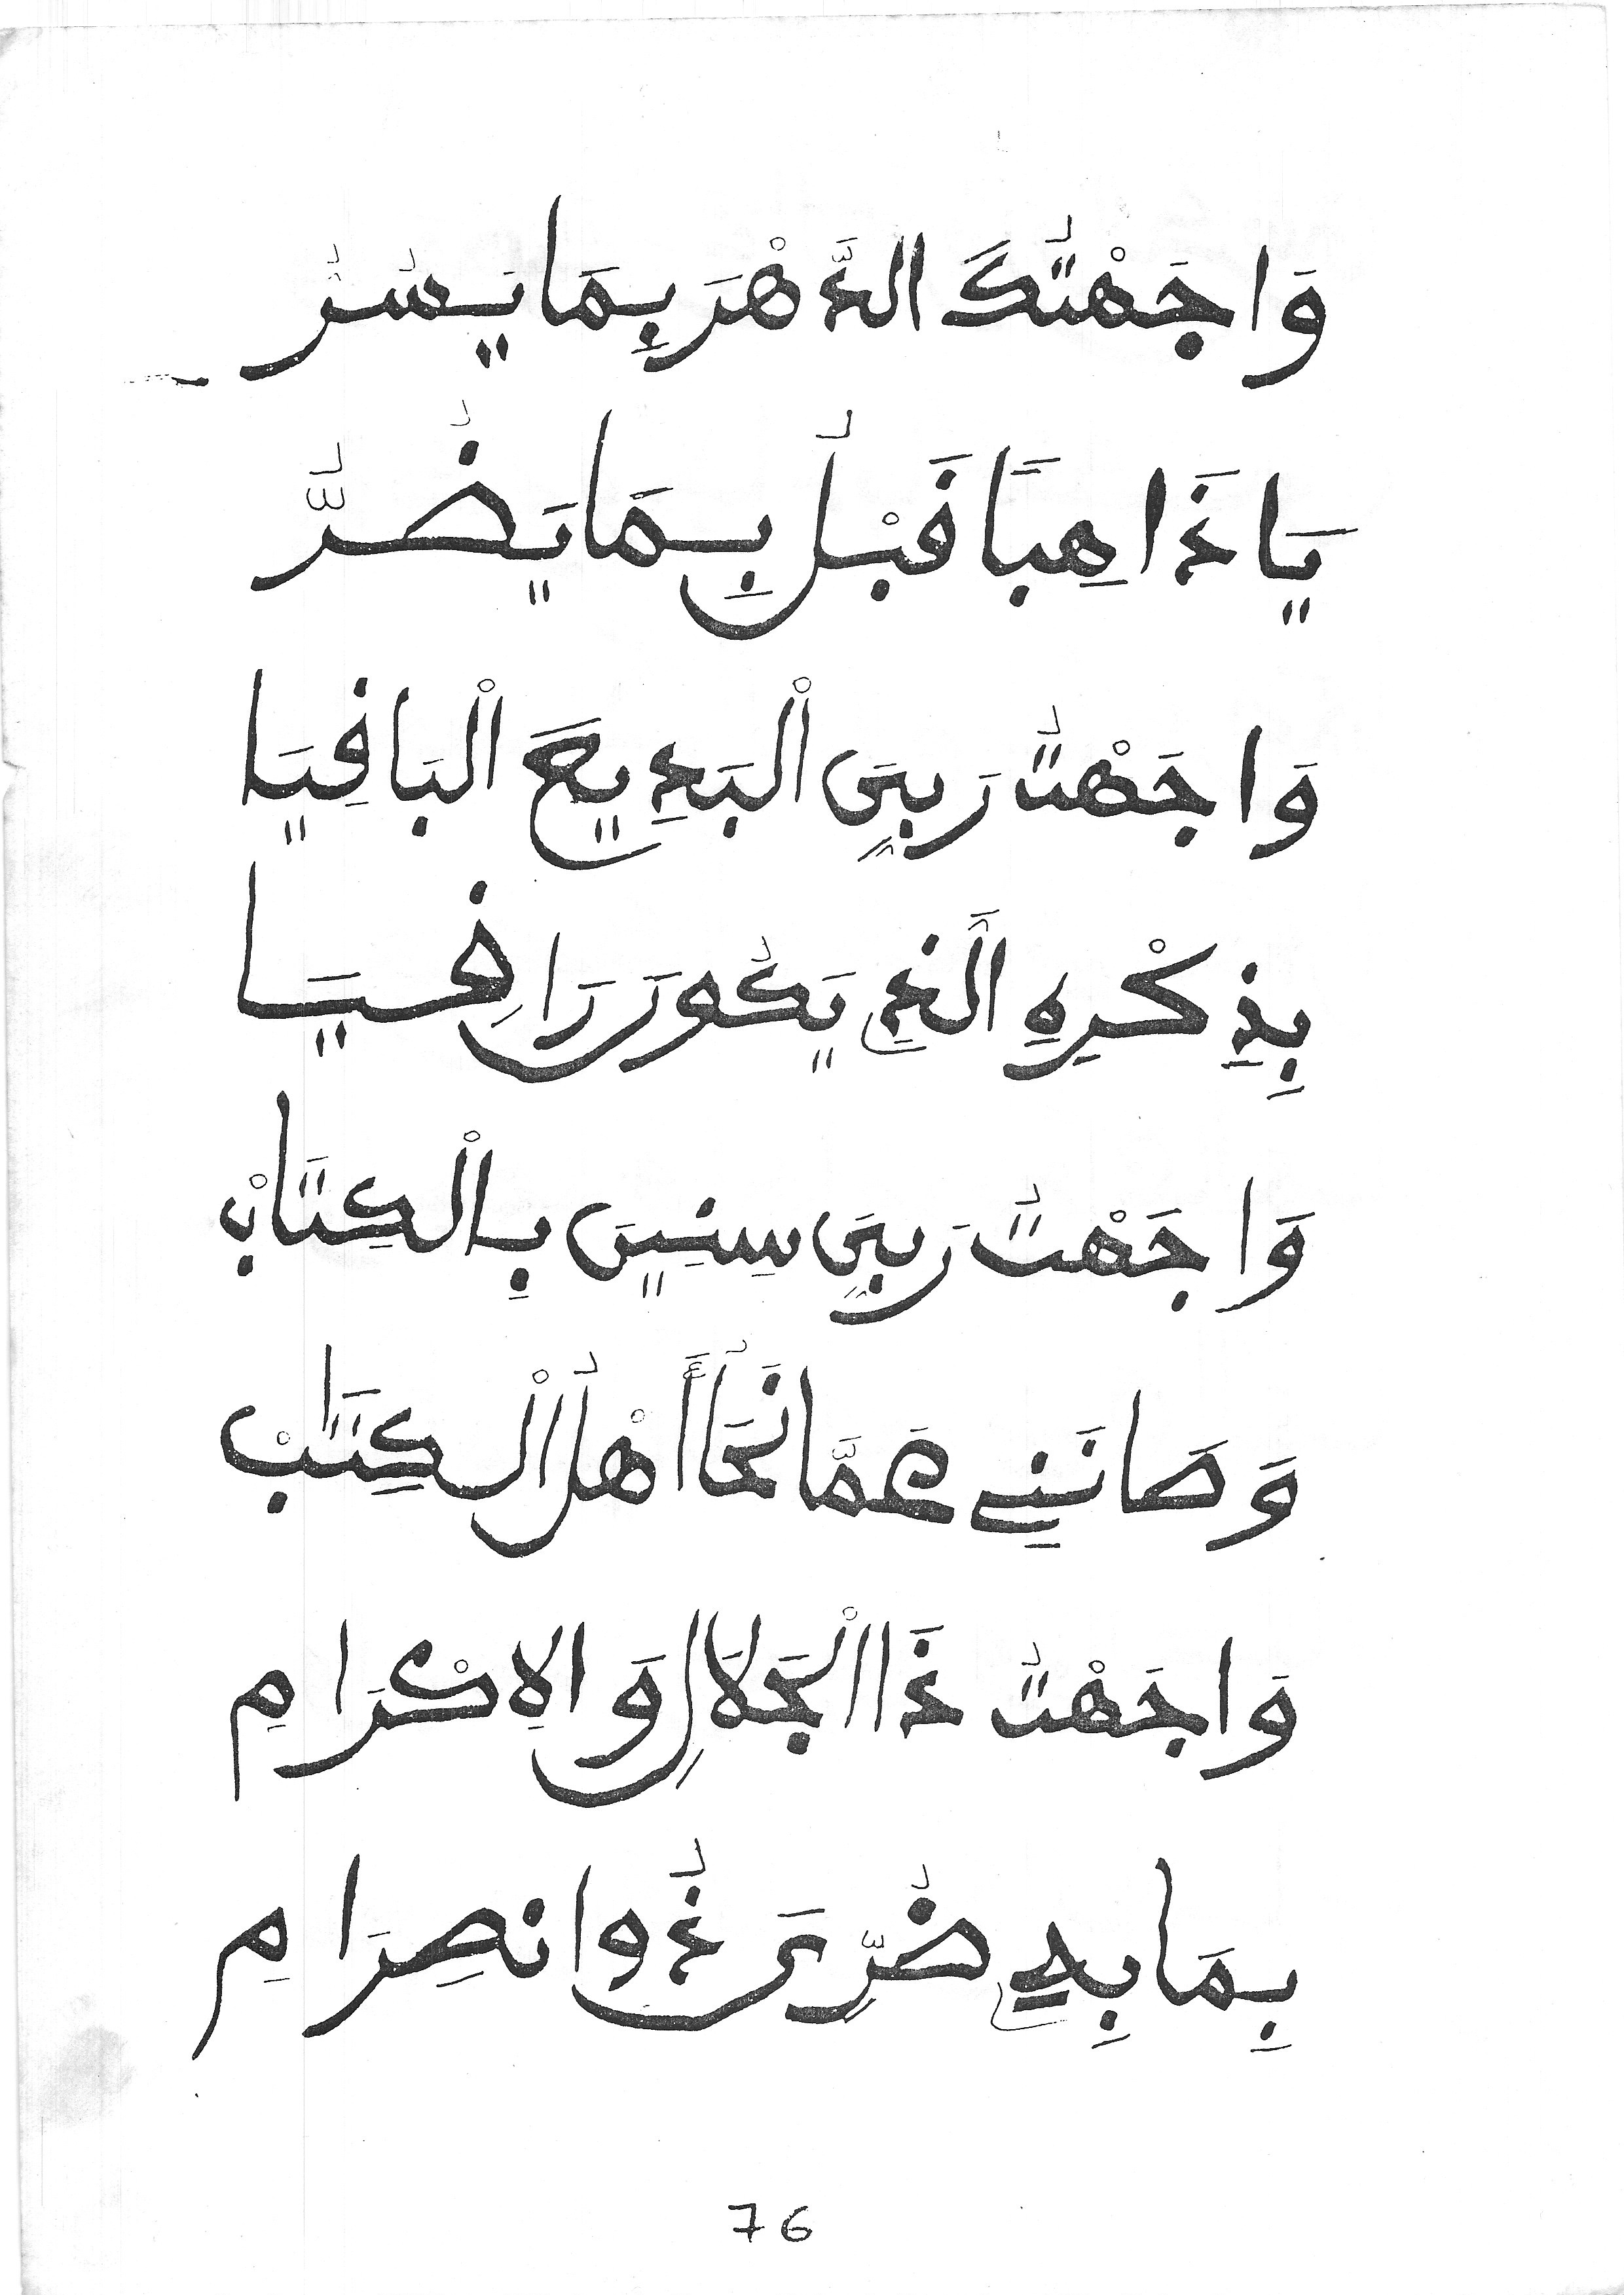 وَاجَهْتُكَ الدَّهْرَ بِمَا يَسُرُّ
يَا ذَاهِباً قَبْلُ بِمَا يَضُرُّ
وَاجَهْتُ رَبِّيَ الْبَدِيعَ الْبَاقِيَا
بِذِكْرِهِ الَّذِي يَكُونَ رَاقِيَا
وَاجَهْتُ رَبِّيَ سِنِينَ بِالْكِتَابْ
وَصَانَنِي عَمَّا نَحَا أَهْلُ الْكِتَابْ
وَاجَهْتُ ذَا الْجَلَالِ وَالِاكْرَامِ
بِمَا بِهِ ضُرِّيَ ذُو انصِرَامِ
76